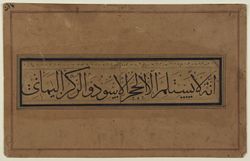 انه لا يستلم الا الحجر الاسود و الركن اليماني